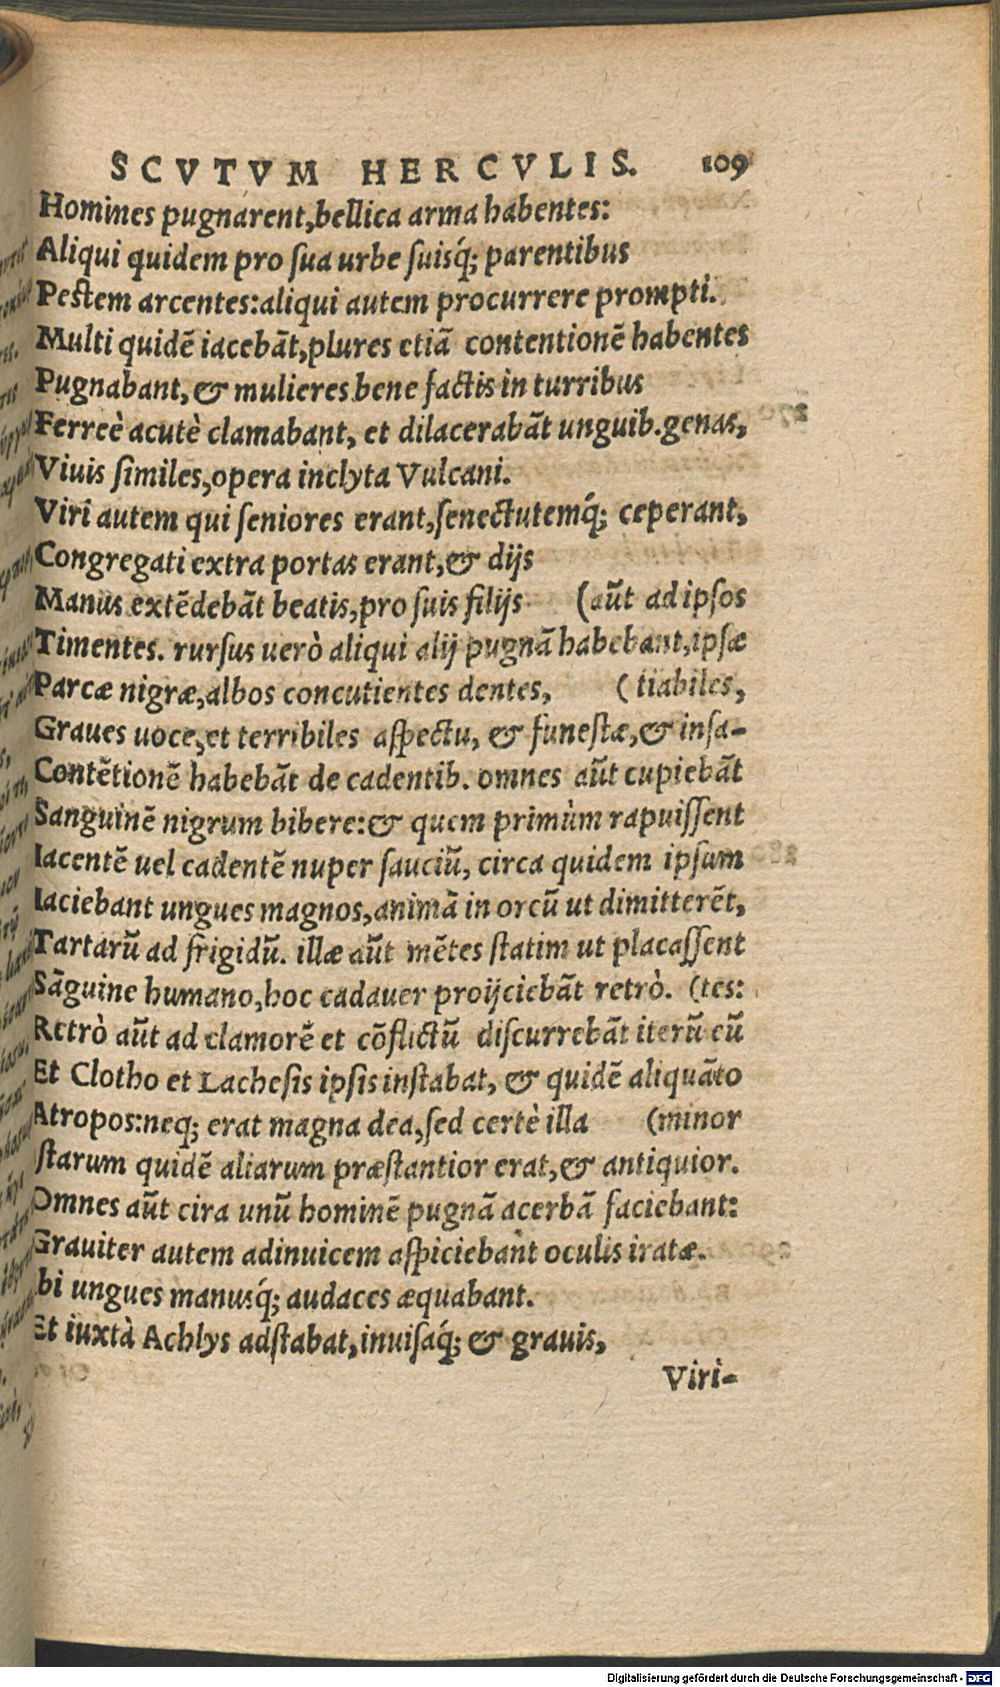 SCVTVM HERCVLIS. 109
Homines pugnarent,bellica arma habentes:
Aliqui quidem pro ſua urbe ſuisq́; parentibus
Peſtem arcentes:aliqui autem procurrere prompti.
Multi quidē iacebāt,plures etiā contentionē habentes
Pugnabant, & mulieres bene factis in turribus
Ferreè acutè clamabant, et dilacerabāt unguib.genas,
Viuis ſimiles,opera inclyta Vulcani.
Viri autem qui ſeniores erant,ſenectutemq́; ceperant,
Congregati extra portas erant,& dijs
Manus extēdebāt beatis,pro ſuis filijs (aūt ad ipſos
Timentes. rurſus uerò aliqui alij pugnā habebant,ipſæ
Parcæ nigræ,albos concutientes dentes, (tiabiles,
Graues uoce,et terribiles aſpectu, & funeſtæ,& inſa-
Contētionē habebāt de cadentib. omnes aūt cupiebāt
Sanguinē nigrum bibere:& quem primùm rapuiſſent
Iacentē uel cadentē nuper ſauciū, circa quidem ipſum
Iaciebant ungues magnos,animā in orcū ut dimitterēt,
Tartarū ad frigidū. illæ aūt mētes ſtatim ut placaſſent
Sāguine humano,hoc cadauer proijciebāt retrò. (tes:
Retrò aūt ad clamorē et cōflictū diſcurrebāt iterū eū
Et Clotho et Lacheſis ipſis inſtabat, & quidē aliquāto
Atropos:neq; erat magna dea,ſed certè illa (minor
ſtarum quidē aliarum præſtantior erat,& antiquior.
Omnes aūt cira unū hominē pugnā acerbā faciebant:
Grauiter autem adinuicem aſpiciebant oculis iratæ.
bi ungues manusq́; audaces æquabant.
Et iuxtà Achlys adſtabat,inuiſaq́; & grauis,
Viri-
Digitalisierung gefördert durch die Deutsche Forschungsgemeinschaft - DFG